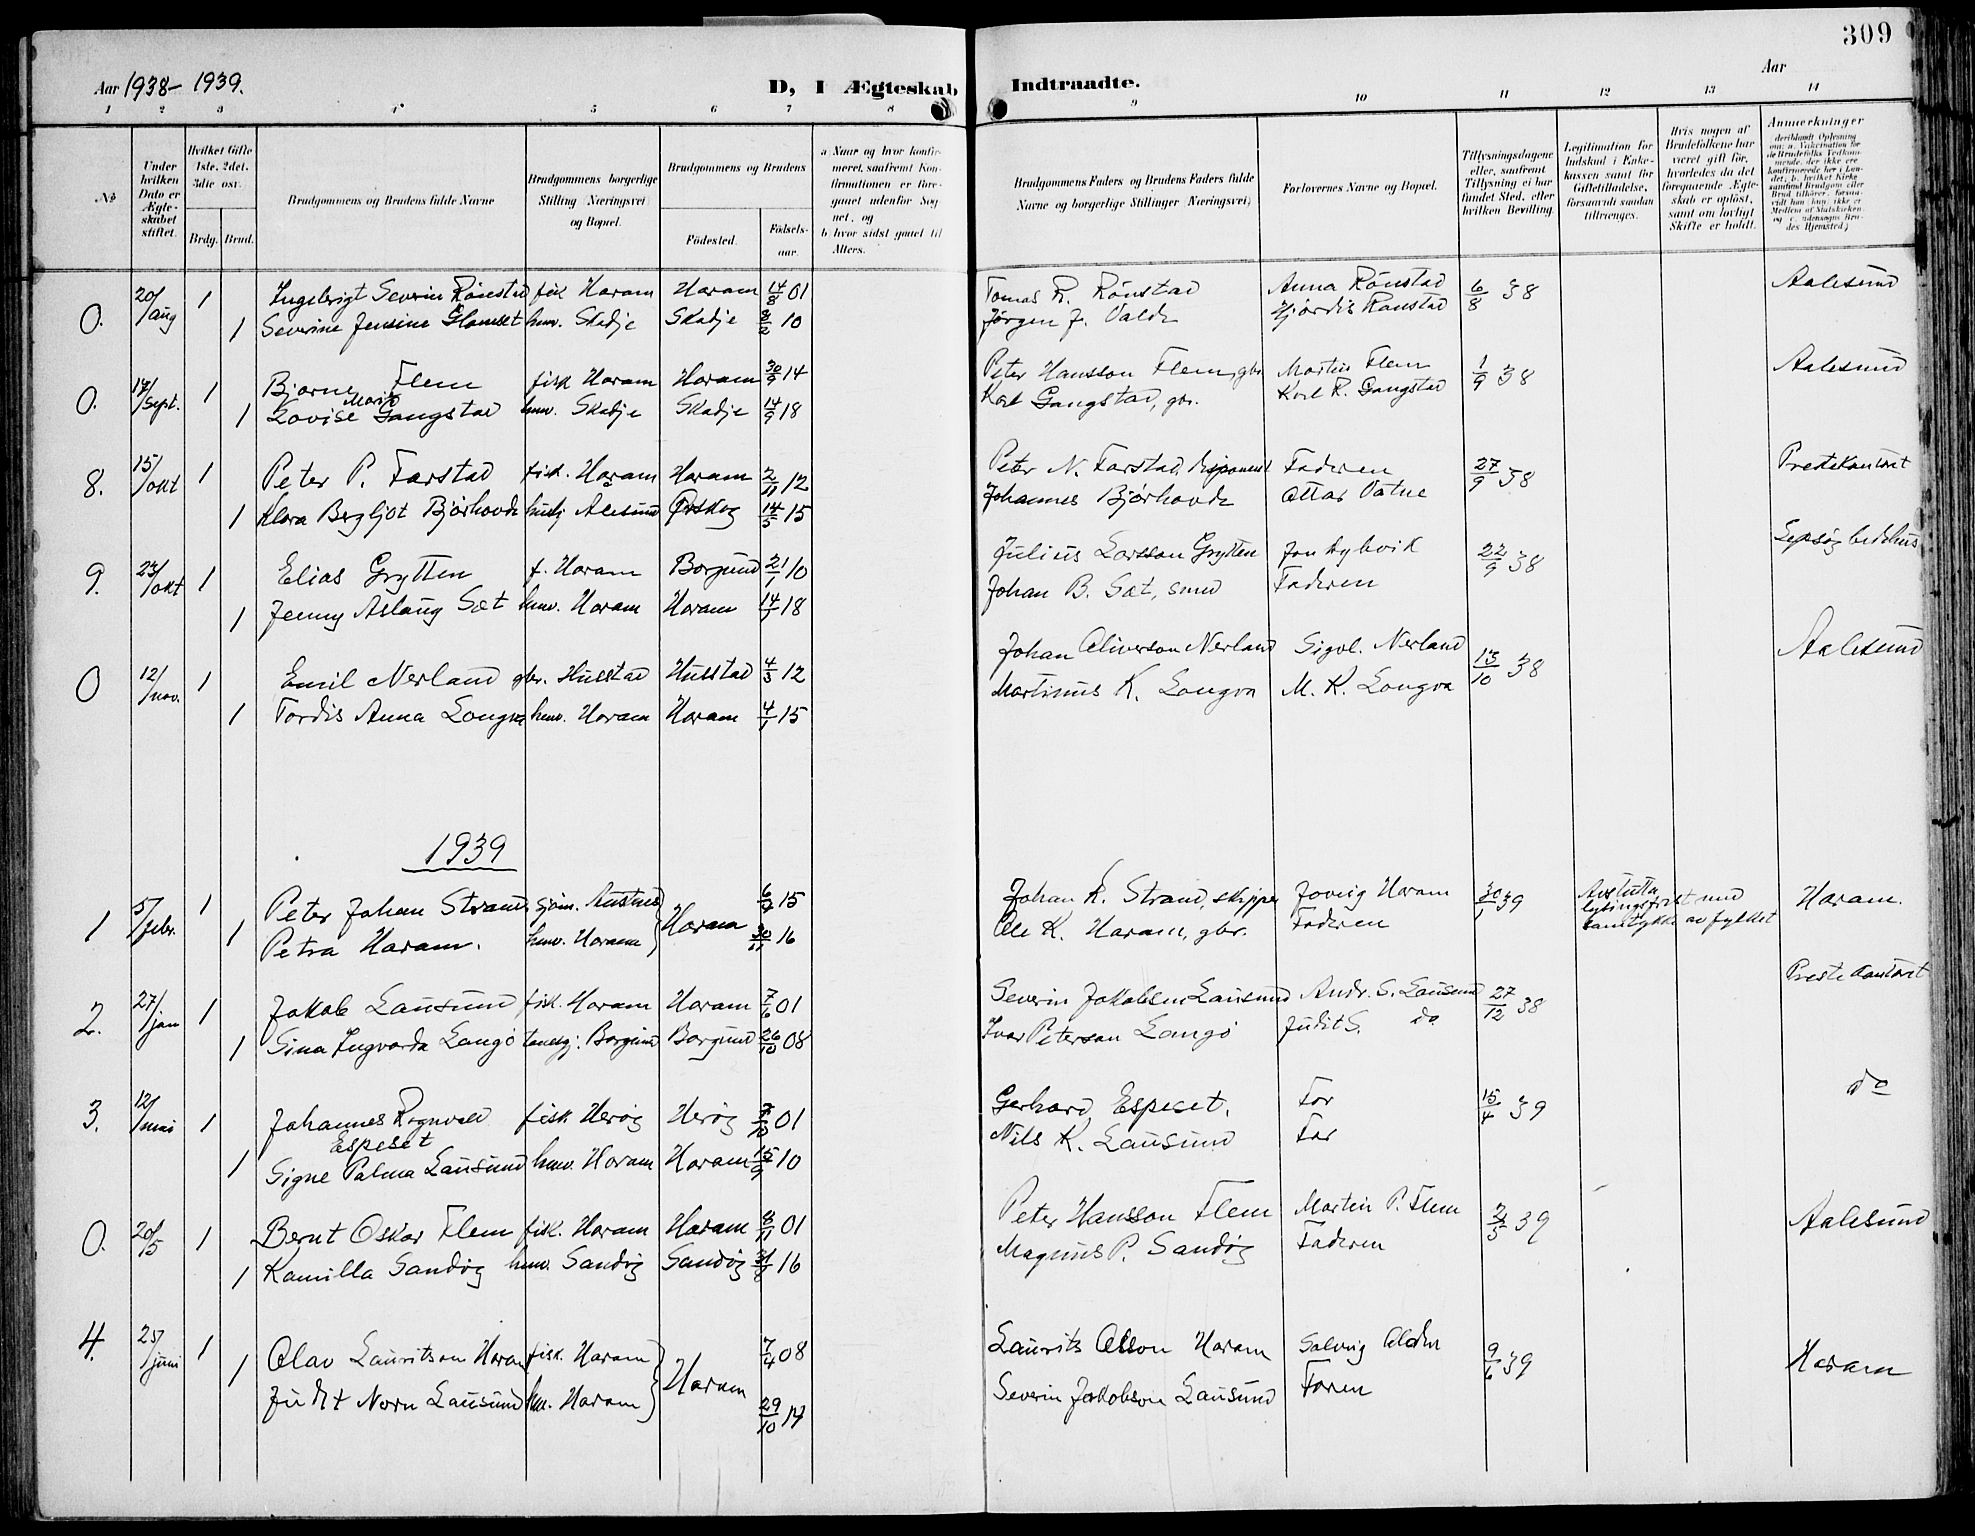 309
Aar 1938- 1939.
D, I Ægteskab Indtraadte.
Aar
1 2 3 4 5 6 7 8 9 10 11 12 13 14
№
Under hvilken Dato er Ægteskabet stiftet.
Hvilket Gifte 1ste, 2det, 3die osv.
Brdg. Brud.
Brudgommens og Brudens fulde Navne
Brudgommens borgerlige Stilling Næringsvei og Bopæl.
Brudgommens og Brudens
Födested. Födselsaar.
a Naar og hvor konfirmeret, saafremt Konfirmationen er foregaaet udenfor Sognet, og
b hvor sidst gaaet til Alters.
Brudgommens Faders og Brudens Faders fulde Navne og borgerlige Stillinger Næringsvei)
Forlovernes Navne og Bopæl.
Tillysningsdagene eller, saafremt Tillysning ei har fundet Sted, efter hvilken Bevilling.
Legitimation for Indskud i Enkekassen samt for Giftetilladelse, forsaavidt saadan tiltrænges.
Hvis nogen af Brudefolkene har været gift før, hvorledes da det foregaaende Ægteskab er opløst, samt om lovligt Skifte er holdt.
Anmerkninger
0. 20/aug 1 Ingebrigt Severin Rönstad fisk Haram Haram 14/8 01 Tomas R. Rönstad Anna Rönstad 6/8 38 Aalesund
1 Severine Jensine Glomset hmv. Skodje Skodje 8/2 10 Jørgen J. Valde Hjördis Rönstad
0. 17/sept. 1 Bjarne Flem fisk Haram Haram 30/9 14 Peter Hansson Flem, gbr. Martin Flem 1/9 38 Aalesund
1 Lovise Marie Gangstad hmv. Skodje Skodje 14/9 18 Karl Gangstad, gbr. Karl R. Gangstad
8. 15/okt 1 Peter P. Farstad fisk. Haram Haram 2/11 12 Peter N. Farstad, disponent Faderen 27/9 38 Prestekontoret
1 Klara Bergljot Bjørhovde husbj Alesund Ørskog 14/5 15 Johannes Bjørhovde Ottar Vatne
9. 23/okt 1 Elias Grytten f. Haram Borgund 21/1 10 Julius Larsson Grytten Jon Nyhvik 22/9 38 Lepsøy bedehus
1 Jenny Aslaug Sæt hmv. Haram Haram 14/1 18 Johan B. Sæt, smed Faderen
0 12/nov. 1 Emil Nerland gbr. Hustad Hustad 4/3 12 Johan Oliverson Nerland Sigvl. Nerland 13/10 38 Aalesund
1 Tordis Anna Longva hmv. Haram Haram 4/1 15 Martinus K. Longva M. K. Longva
1939
1 5/febr. 1 Peter Johan Strand, sjøm. Austnes Haram 6/4 15 Johan K. Strand, skipper Joveig Haram 30/1 39 Avstutta lysingsfrist med samtykke av fylket Haram.
1 Petra Haram. hmv. Haram 30/11 16 Ole K. Haram, gbr. Faderen
2. 27/jan 1 Jakob Lausund fisk. Haram Haram 7/6 01 Severin Jakobsen Lausund Andr. S. Lausund 27/12 38 Prestekontoret
1 Sina Ingvarda Langö Borgund Borgund 26/10 08 Ivar Peterson Langö Judit S. do
3. 12/mai 1 Johannes Rognvald Espeset fisk Herøy Herøy 01 Gerhard Espeset. Far 15/4 39 do
1 Signe Palma Lausund hmv. Haram Haram 15/9 10 Nils K. Lausund Far
0. 20/5 1 Bernt Oskar Flem fisk. Haram Haram 8/11 01 Peter Hansson Flem Martin P. Flem 2/5 39 Aalesund
1 Kamilla Sandøy hmv. Sandøy Sandøy 31/8 16 Magnus P. Sandøy Faderen
4. 25/juni 1 Olav Lauritson Haram fisk. Haram Haram 7/4 08 Laurits Olson Haram Solveig 9/6 39 Haram
1 Judit Norn Lausund hm. Haram 29/10 14 Severin Jakobson Lausund Faren